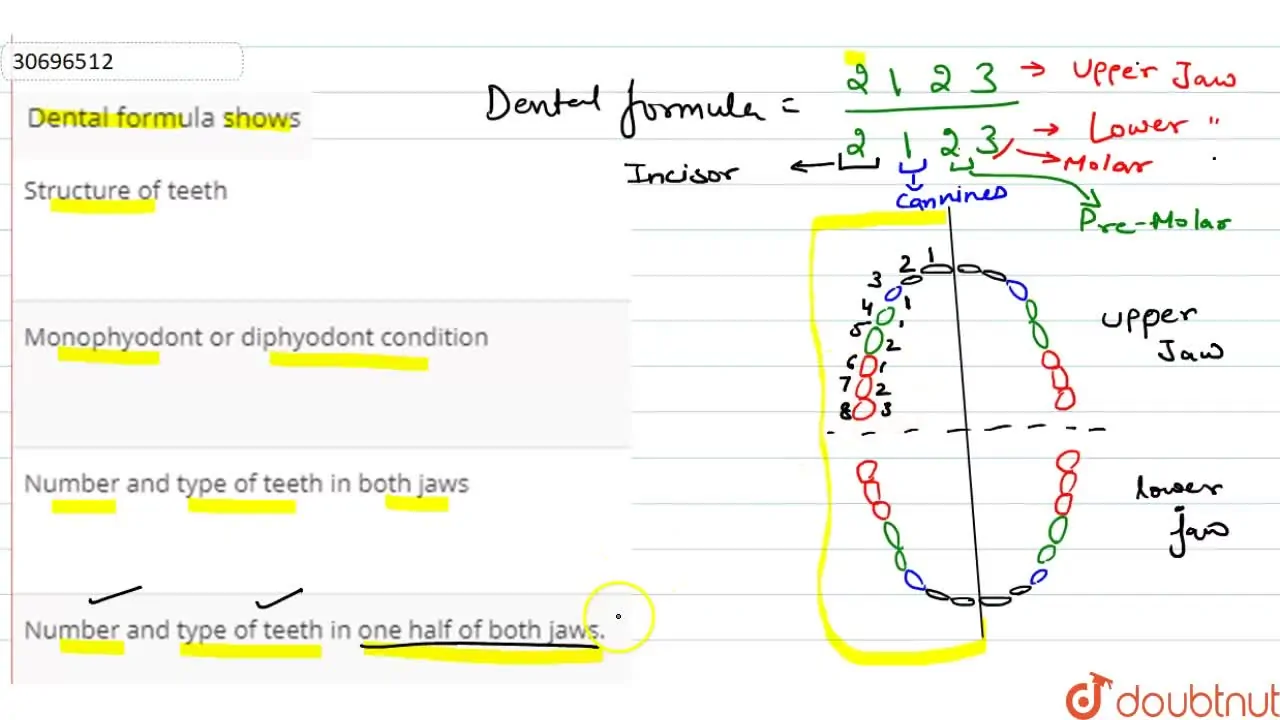 30696512
Dental formula shows
Structure of teeth
Monophyodont or diphyodont condition
Number and type of teeth in both jaws
Number and type of teeth in one half of both jaws.
Dental formula =
2 1 2 3 → Upper Jaw
2 1 2 3 → Lower "
Incisor
Cannines
Molar
Pre-Molar
1
2
3
4 1
5 1
2
6 1
7 2
8 3
upper
Jaw
lower
jaw
doubtnut